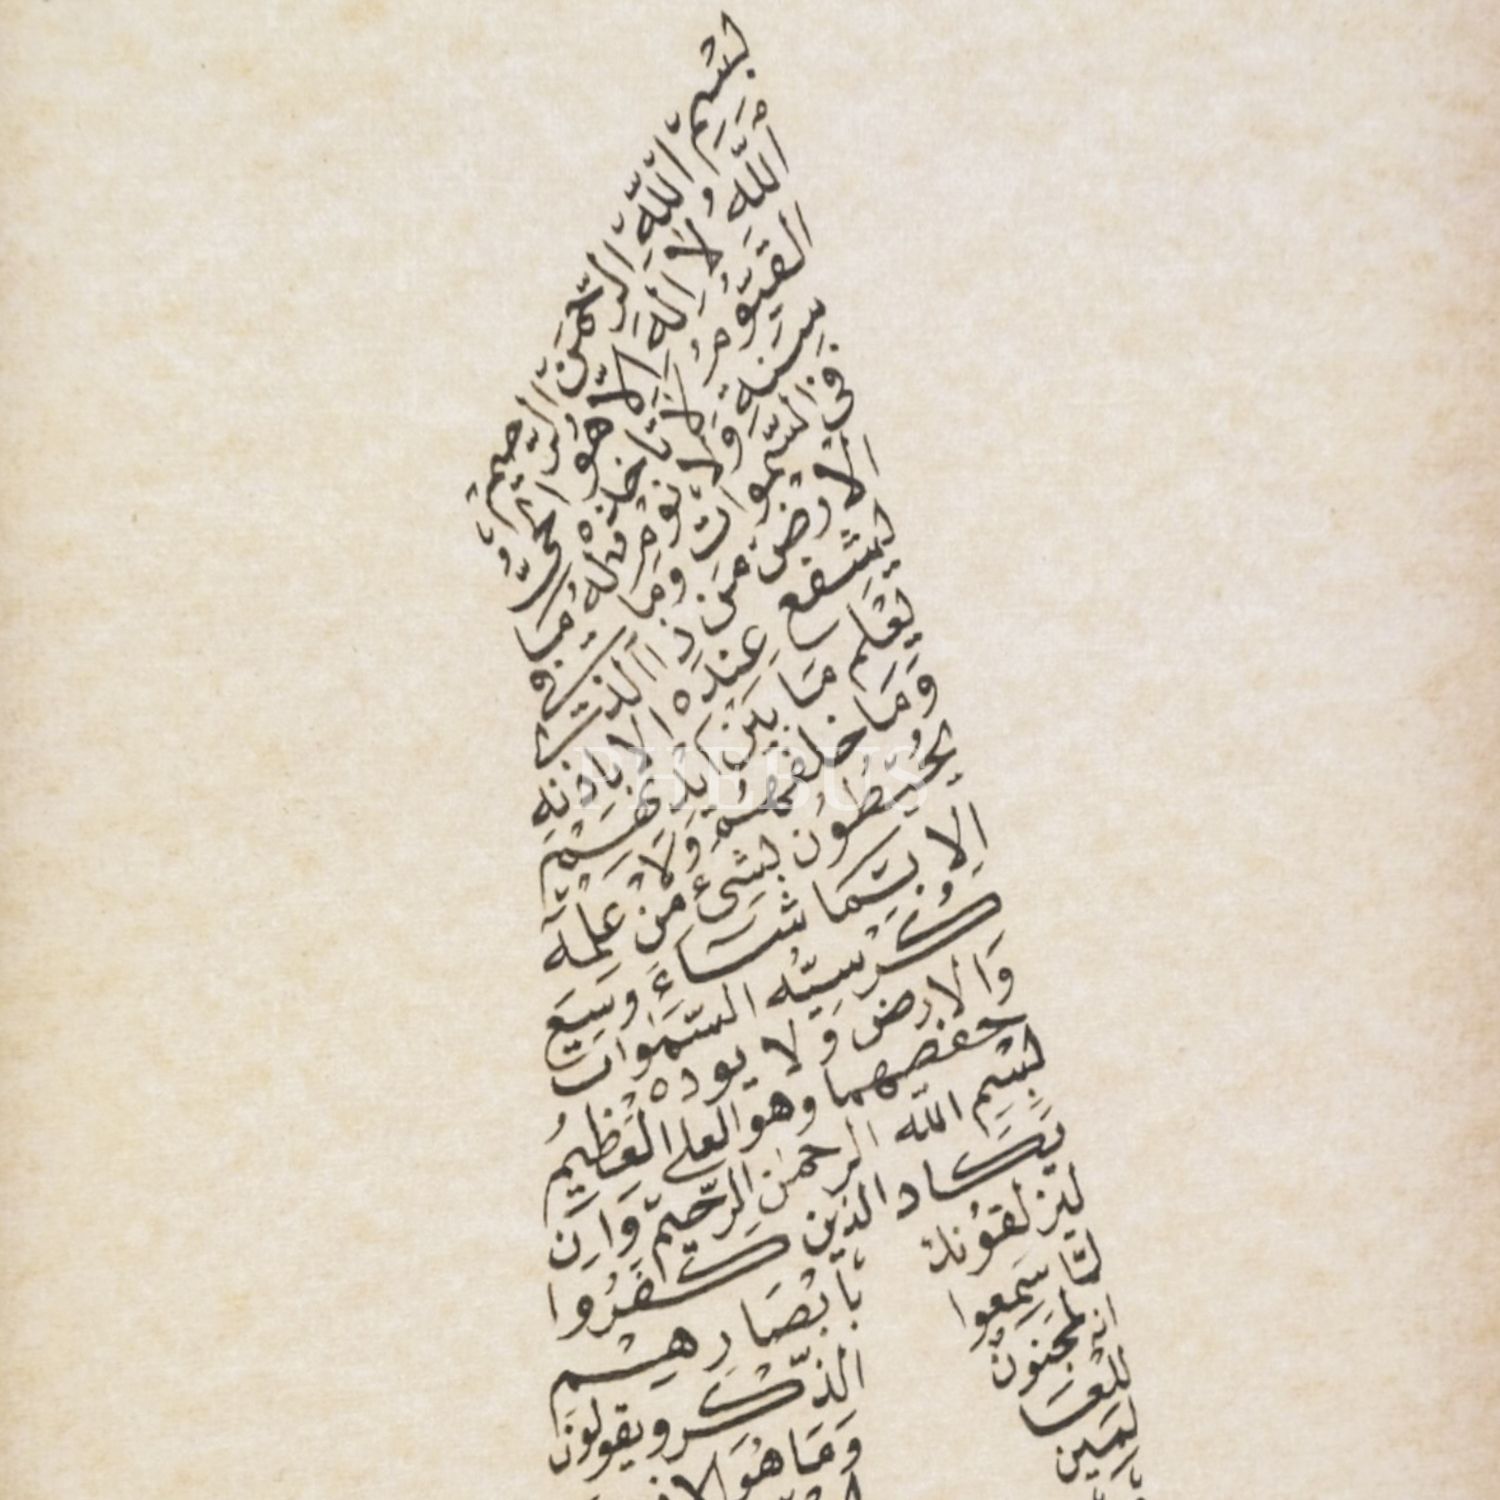 بِسْمِ اللّٰهِ الرَّحْمٰنِ الرَّحِيمِ
اَللّٰهُ لَا اِلٰهَ اِلَّا هُوَ الْحَيُّ
الْقَيُّومُ لَا تَاْخُذُهُ
سِنَةٌ وَلَا نَوْمٌ لَهُ مَا
فِي السَّمٰوَاتِ وَمَا فِي
الْاَرْضِ مَنْ ذَا الَّذِي
يَشْفَعُ عِنْدَهُ اِلَّا بِاِذْنِهِ
يَعْلَمُ مَا بَيْنَ اَيْدِيهِمْ
وَمَا خَلْفَهُمْ وَلَا
يُحِيطُونَ بِشَيْءٍ مِنْ عِلْمِهِ
اِلَّا بِمَا شَاءَ وَسِعَ
كُرْسِيُّهُ السَّمٰوَاتِ
وَالْاَرْضَ وَلَا يَوُدُهُ
حفضهما وهو العلي العَظِيمُ
بِسْمِ اللّٰه الرحمٰن الرَّحِيمِ وَاِنْ
يَكَاد الذين كَفَرُوا
لَيُزْلِقُونَكَ بِاَبْصَارِهِمْ
لَمَّا سَمِعُوا الذِّكْرَ ويقولون
انه لمجنون وَمَا هُوَ الا
للعَا
لمين
PHEBUS